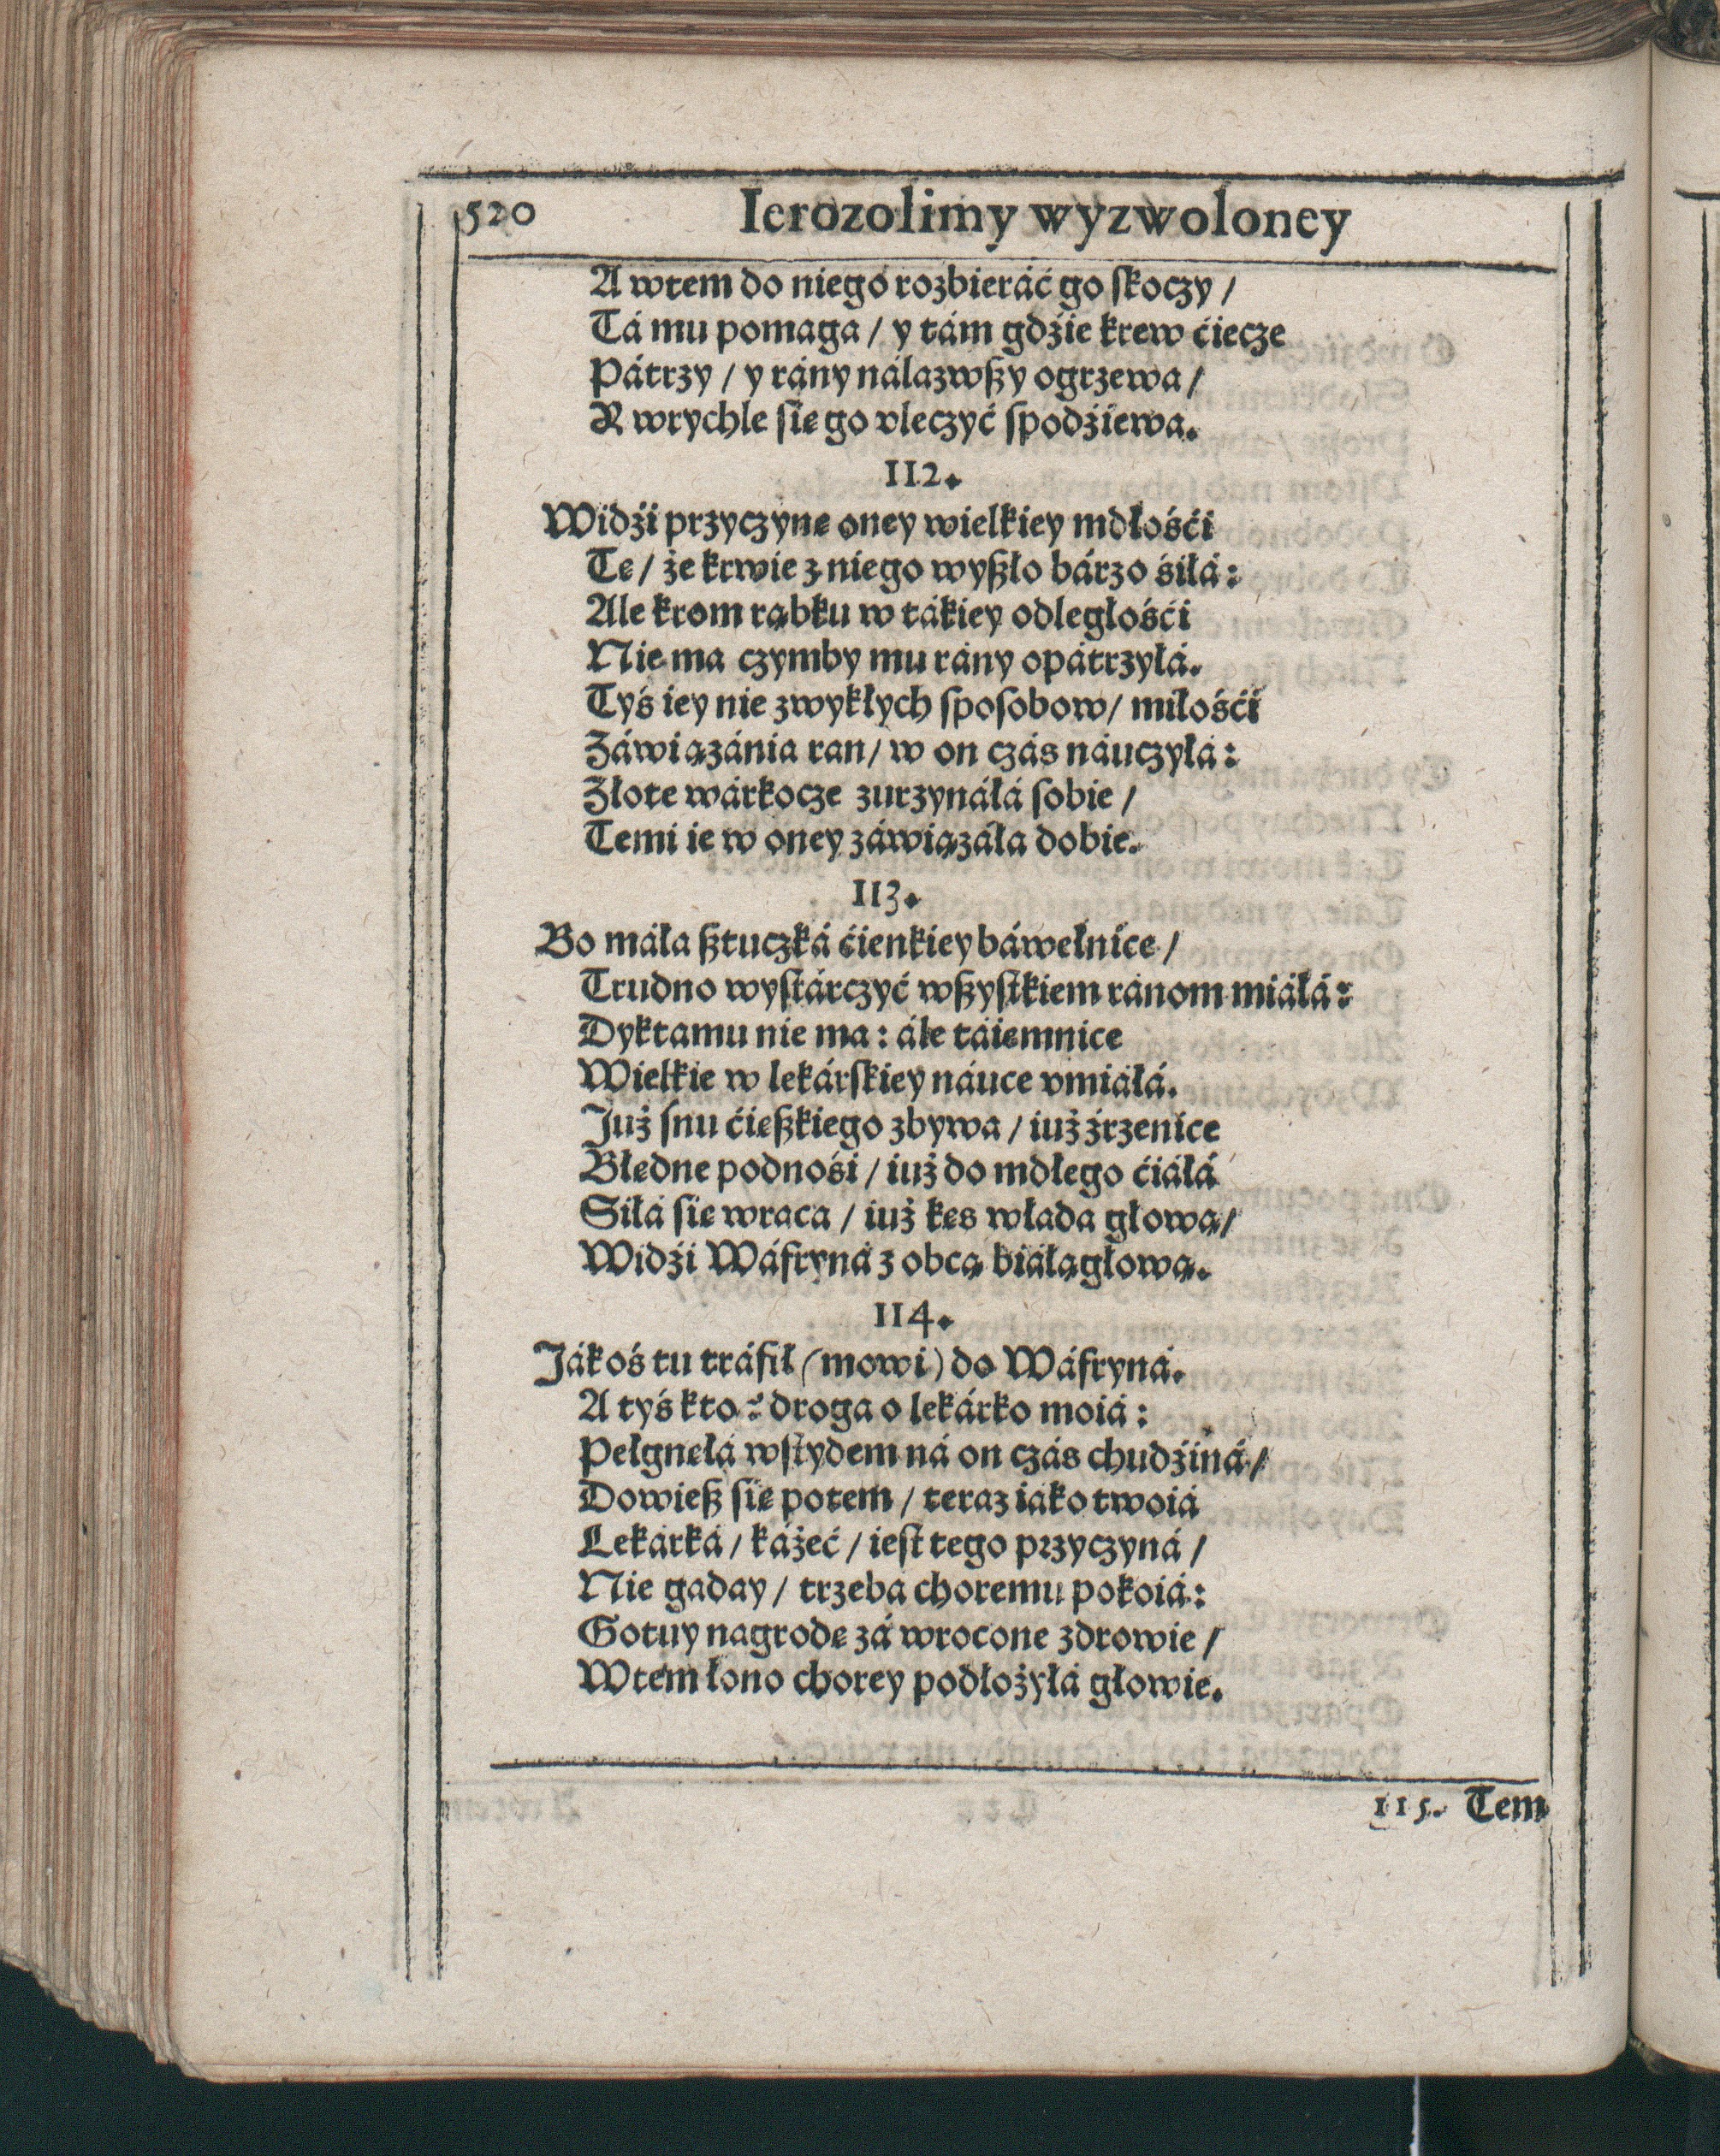 520 Ierozolimy wyzwoloney
A wtem do niego rozbieráć go skoczy /
Tá mu pomaga / y tám gdźie krew ćiecze
Pátrzy / y rány nálazwszy ogrzewa /
R wrychle się go vleczyć spodźiewa.
112.
Widźi przyczynę oney wielkiey mdłośći
Tę / że krwie z niego wyszło bárzo śiłá:
Ale krom rąbku w tákiey odległośći
Nie ma czymby mu rány opátrzyłá.
Tyś iey nie zwykłych sposobow / miłośći
Záwiązánia ran / w on czás náuczyłá:
Złote wárkocze zurzynáłá sobie /
Temi ie w oney záwiązáła dobie.
113.
Bo máła sztuczká ćienkiey báwełnice /
Trudno wystárczyć wszystkiem ránom miáłá:
Dyktamu nie ma: ále táiemnice
Wielkie w lekárskiey náuce vmiáłá.
Już snu ćięszkiego zbywa / iuż źrzenice
Błędne podnośi / iuż do mdłego ćiáłá
Siłá się wraca / iuż kęs włada głową /
Widźi Wáfryná z obcą białągłową.
114.
Jákoś tu tráfił (mowi) do Wáfryná.
A tyś kto? droga o lekárko moiá:
Pełgnęłá wstydem ná on czás chudźiná /
Dowiesz się potem / teraz iáko twoiá
Lekárká / káżeć / iest tego przyczyná /
Nie gaday / trzeba choremu pokoiá:
Gotuy nagrodę zá wrocone zdrowie /
Wtem łono chorey podłożyłá głowie.
115. Tem